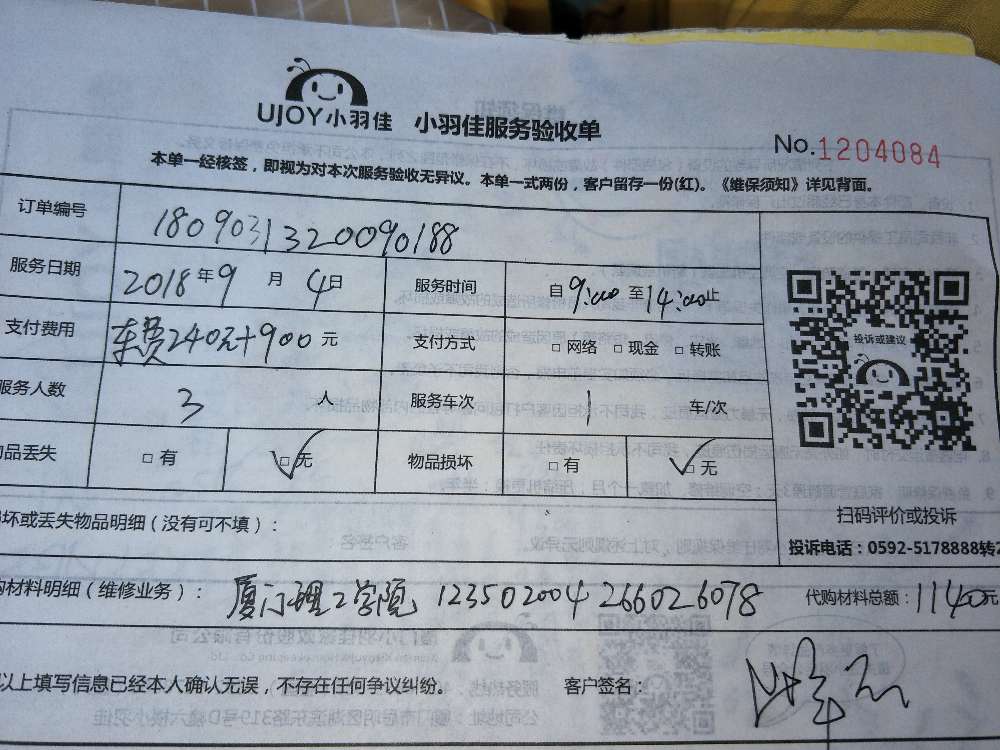 UJOY小羽佳 小羽佳服务验收单
No.1204084
本单一经核签，即视为对本次服务验收无异议。本单一式两份，客户留存一份(红)。《维保须知》详见背面。
订单编号 1809031320090188
服务日期 2018年9月4日 服务时间 自9:00至14:00止
支付费用 车费240元+900元 支付方式 □网络 □现金 □转账
服务人数 3人 服务车次 1车/次
品丢失 □有 □无 物品损坏 □有 □无
投诉或建议
扫码评价或投诉
坏或丢失物品明细（没有可不填）：
投诉电话：0592-5178888转2
购材料明细（维修业务）： 厦门理工学院 123502004266026078 代购材料总额：1140元
以上填写信息已经本人确认无误，不存在任何争议纠纷。 客户签名：